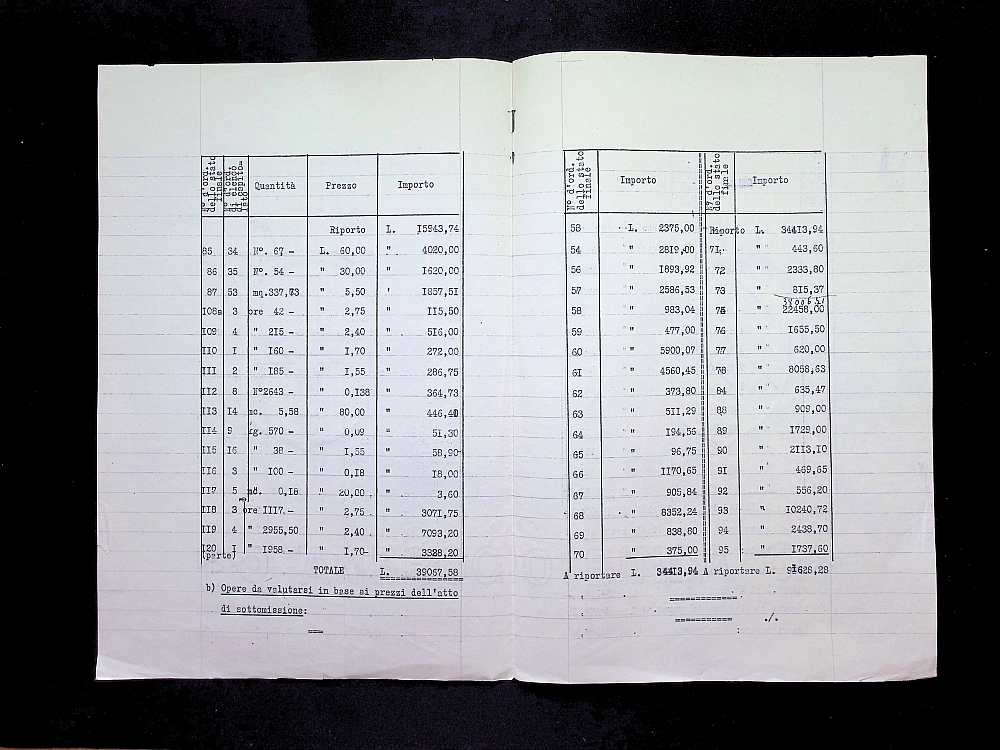 N° d'ord. dello stato finale | N° d'ord. di elenco di capito= lato | Quantità | Prezzo | Importo
Riporto L. 15943,74
85 34 N°. 67 - L. 60,00 " 4020,00
86 35 N°. 54 - " 30,00 " 1620,00
87 53 mq.337,73 " 5,50 " 1857,51
108a 3 ore 42 - " 2,75 " 115,50
109 4 " 215 - " 2,40 " 516,00
110 1 " 160 - " 1,70 " 272,00
111 2 " 185 - " 1,55 " 286,75
112 8 N°2643 - " 0,138 " 364,73
113 14 mc. 5,58 " 80,00 " 446,40
114 9 kg. 570 - " 0,09 " 51,30
115 16 " 38 - " 1,55 " 58,90
116 3 " 100 - " 0,18 " 18,00
117 5 0,18 " 20,00 " 3,60
118 3 ore 1117.- " 2,75 " 3071,75
119 4 " 2955,50 " 2,40 " 7093,20
120 1 " 1958.- " 1,70- " 3328,20
(parte)
TOTALE L. 39067,58
b) Opere da valutarsi in base ai prezzi dell'atto
di sottomissione:
N° d'ord. dello stato finale | Importo | N° d'ord. dello stato finale | Importo
53 L. 2375,00 Riporto L. 34413,94
54 " 2819,00 71 " 443,60
56 " 1893,92 72 " 2333,80
57 " 2586,53 73 " 815,37
38006 51
58 " 983,04 75 " 22458,00
59 " 477,00 76 " 1655,50
60 " 5900,07 77 " 620,00
61 " 4560,45 78 " 8058,63
62 " 373,80 84 " 635,47
63 " 511,29 88 " 909,00
64 " 194,56 89 " 1729,00
65 " 96,75 90 " 2113,10
66 " 1170,65 91 " 469,65
67 " 905,84 92 " 556,20
68 " 8352,24 93 " 10240,72
69 " 838,80 94 " 2438,70
70 " 375,00 95 " 1737,60
A riportare L. 34413,94 A riportare L. 91628,28
./.